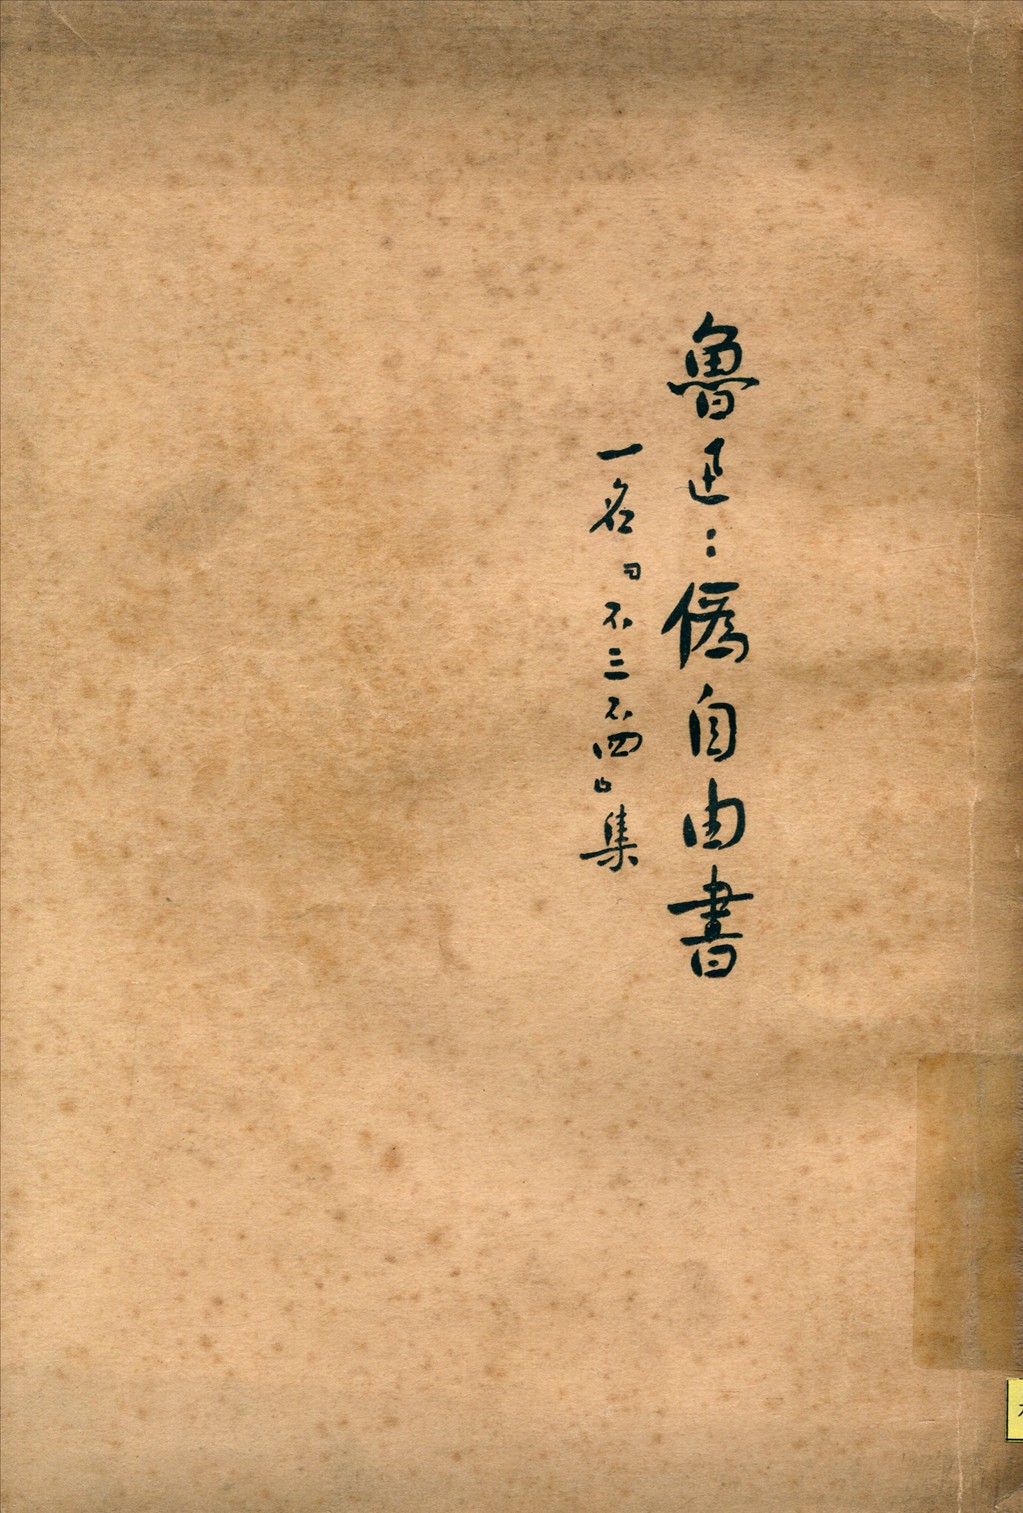 魯迅：偽自由書
一名『不三不四』集